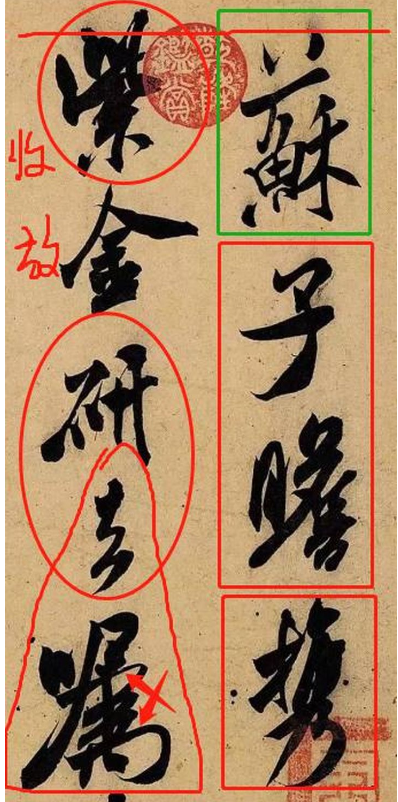 蘇子瞻携
紫金研去嘱
收
放